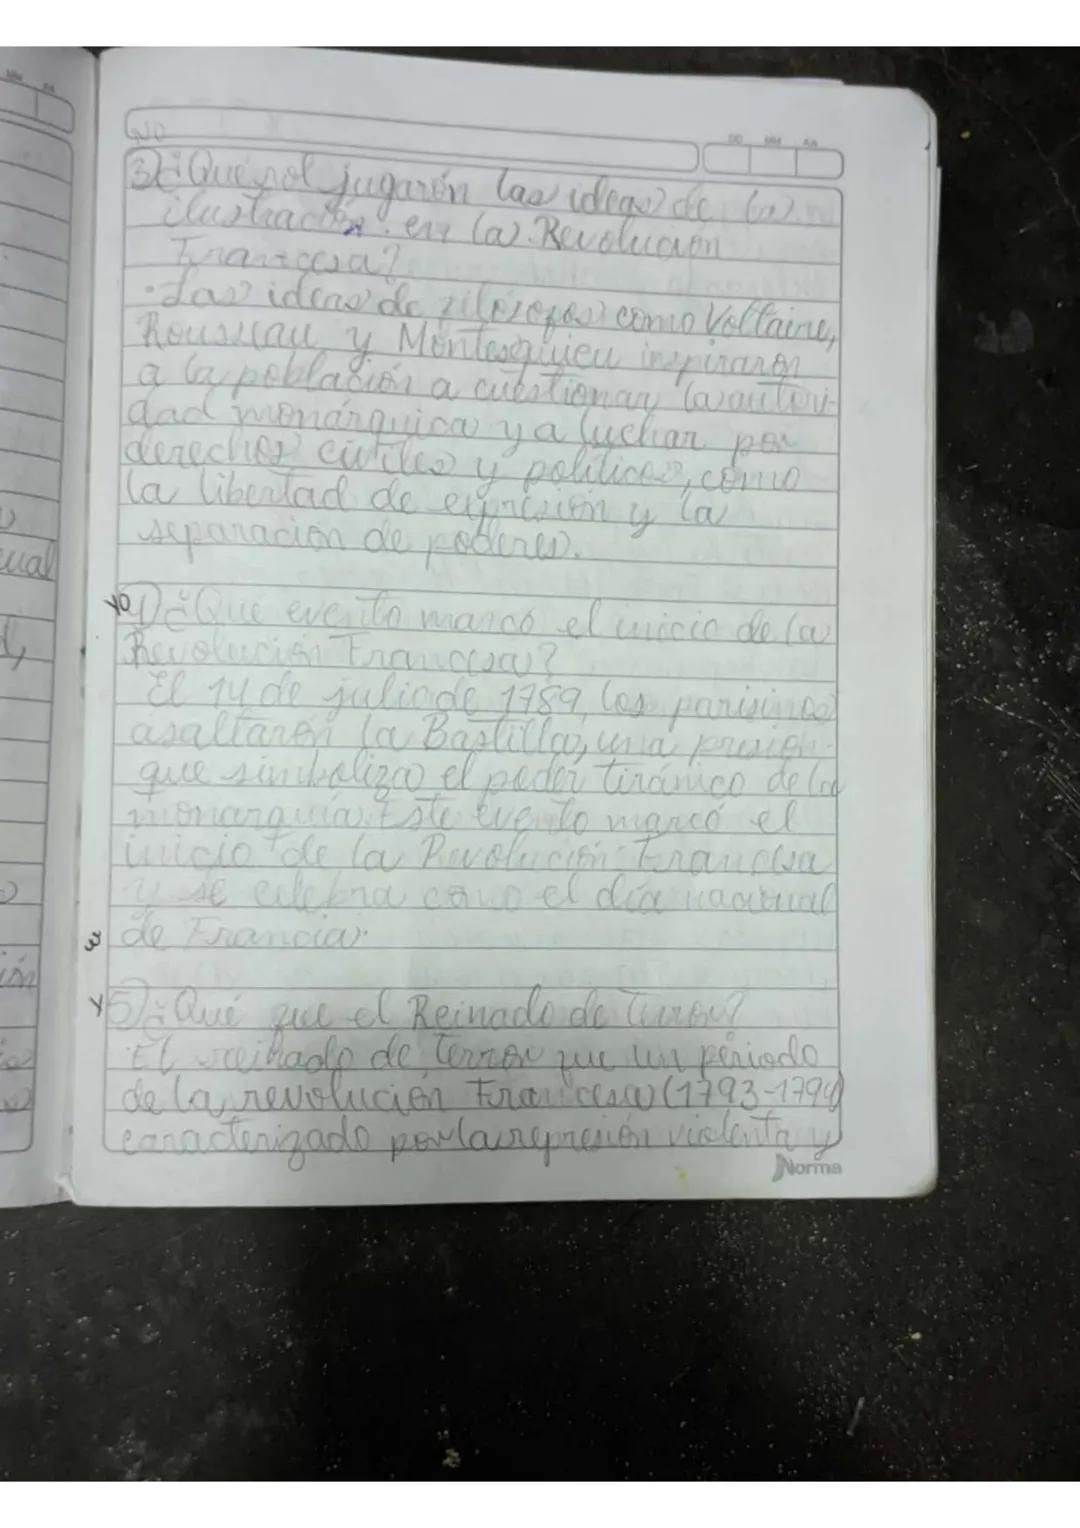 DD MM AA
3) ¿Qué rol jugarón las ideas de la
ilustración en la Revolución
Francesa?
· Las ideas de filósofos como Voltaire,
Rousseau y Montesquieu inspiraron
a la población a cuestionar la autori-
dad monárquica y a luchar por
derechos civiles y políticos, como
la libertad de expresión y la
separación de poderes.
4) ¿Qué evento marcó el inicio de la
Revolución Francesa?
El 14 de julio de 1789, los parisinos
asaltarón la Bastilla, una prisión
que simboliza el poder tiránico de la
monarquía. Este evento marcó el
inicio de la Revolución Francesa
y se celebra como el día nacional
de Francia.
5) ¿Qué fue el Reinado de Terror?
El reinado de terror fue un periodo
de la revolución Francesa (1793-1794)
caracterizado por la represión violenta y
Norma